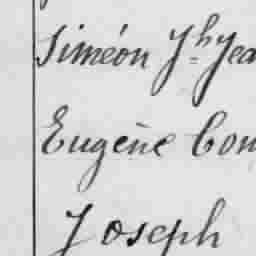 Siméon Jh Jea
Eugène Con
Joseph